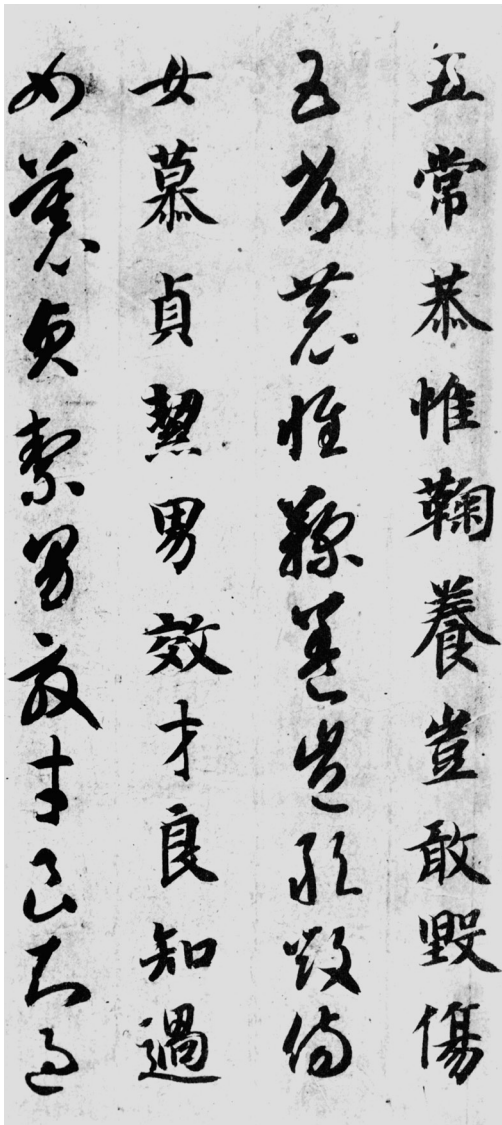 五常恭惟鞠養豈敢毀傷
五常恭惟鞠養豈敢毀傷
女慕貞絜男效才良知過
女慕貞絜男效才良知過